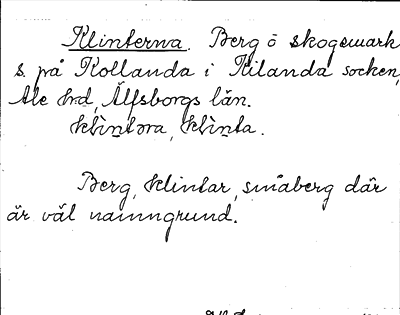 Klinterna. Berg ö skogsmark
s. på Kollanda i Kilanda socken,
Ale hd, Älfsborgs län.
klìntəra, klìnta.
Berg, klintar, småberg där
är väl namngrund.